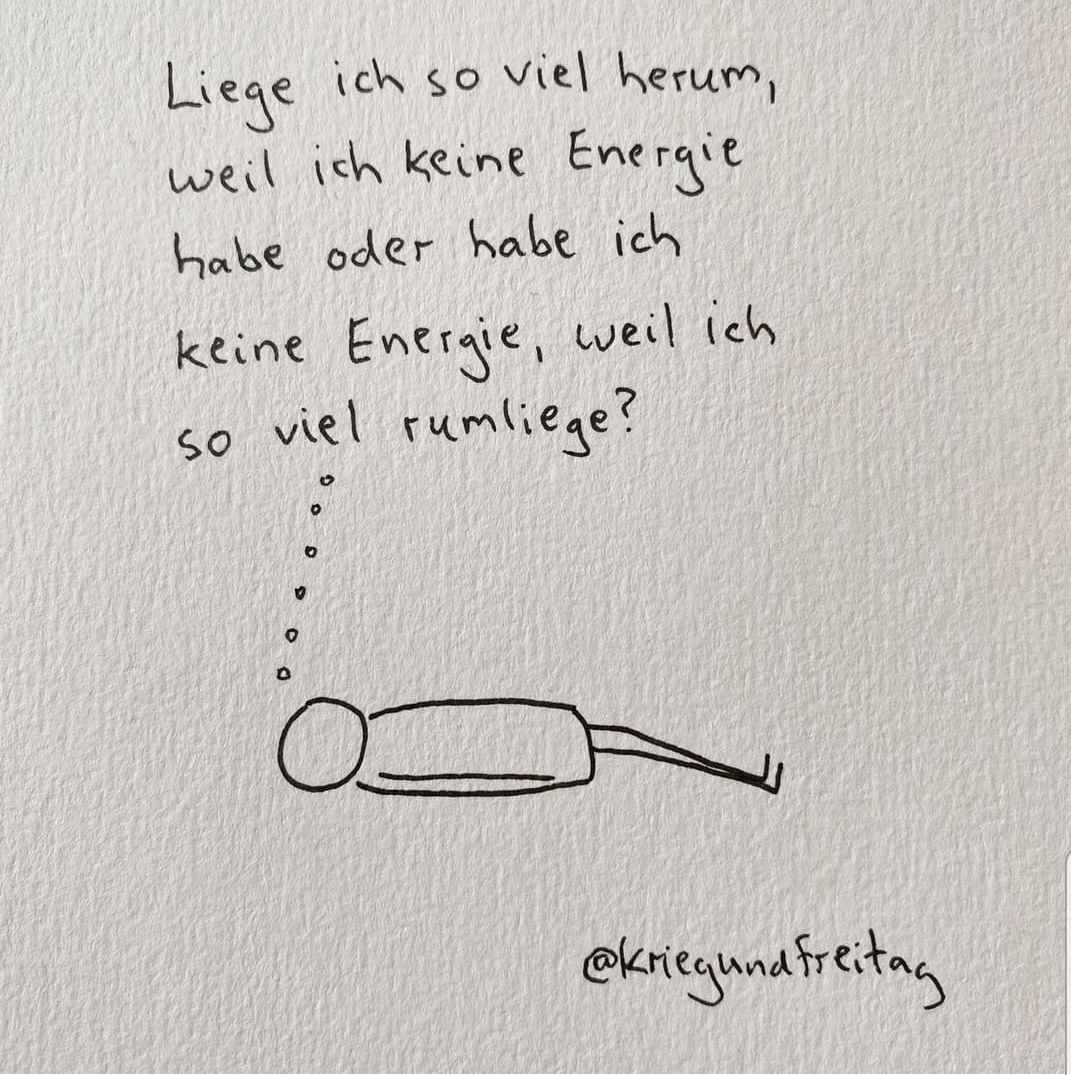 Liege ich so viel herum,
weil ich keine Energie
habe oder habe ich
keine Energie, weil ich
so viel rumliege?
@kriegundfreitag